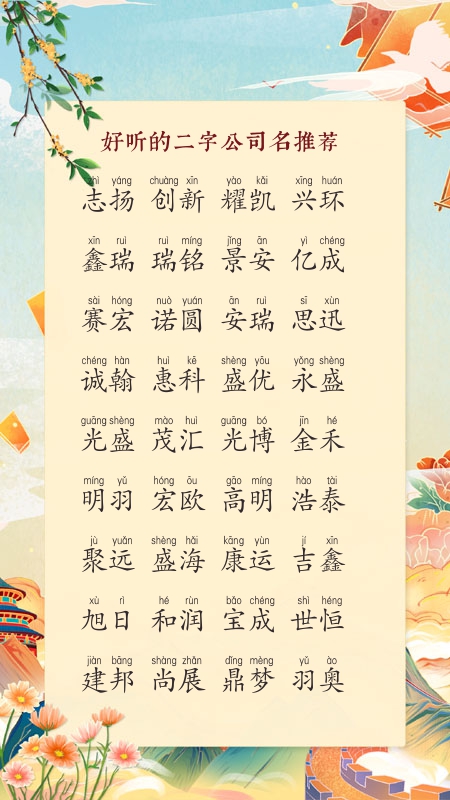 好听的二字公司名推荐
zhì yáng chuàng xīn yào kǎi xīng huán
志扬 创新 耀凯 兴环
xīn ruì ruì míng jǐng ān yì chéng
鑫瑞 瑞铭 景安 亿成
sài hóng nuò yuán ān ruì sī xùn
赛宏 诺圆 安瑞 思迅
chéng hàn huì kē shèng yōu yǒng shèng
诚翰 惠科 盛优 永盛
guāng shèng mào huì guāng bó jīn hé
光盛 茂汇 光博 金禾
míng yǔ hóng ōu gāo míng hào tài
明羽 宏欧 高明 浩泰
jù yuǎn shèng hǎi kāng yùn jí xīn
聚远 盛海 康运 吉鑫
xù rì hé rùn bǎo chéng shì héng
旭日 和润 宝成 世恒
jiàn bāng shàng zhǎn dǐng mèng yǔ ào
建邦 尚展 鼎梦 羽奥